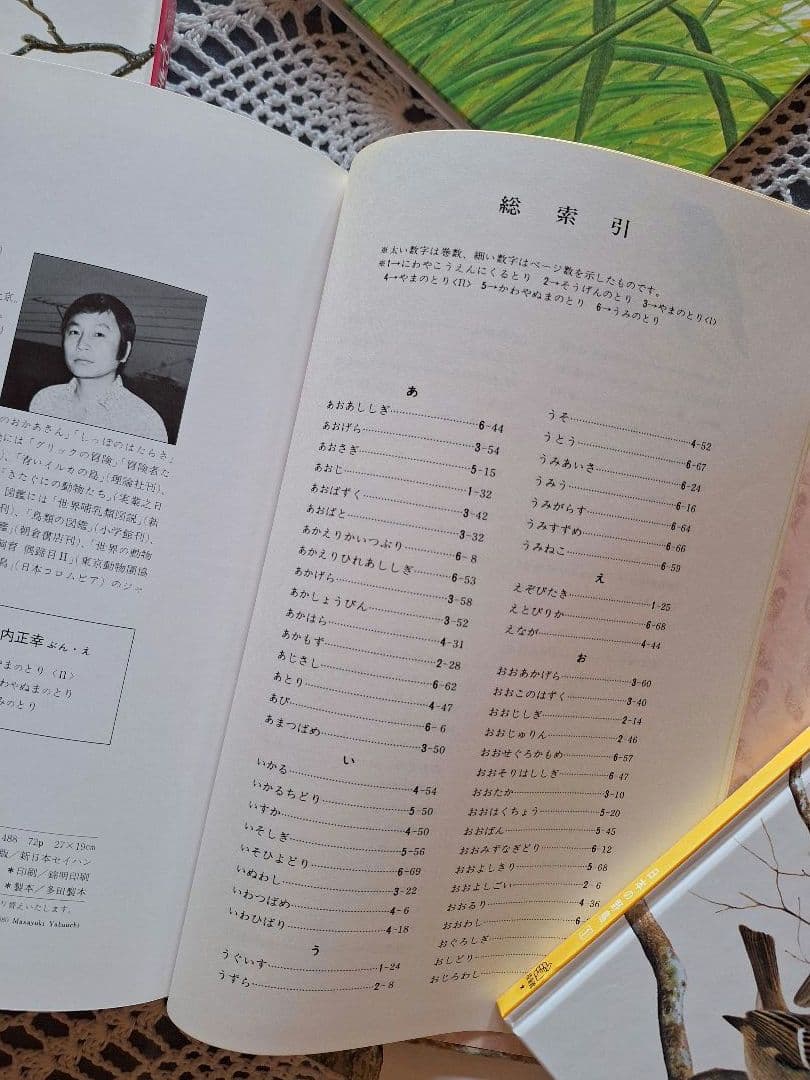 京。
のおかあさん」「しっぽのはたらき」
には「グリックの冒険」「冒険者た
、「青いイルカの島」(理論社刊)、
きたぐにの動物たち」(実業之日
図鑑には「世界哺乳類図説」(新
刊)、「鳥類の図鑑」(小学館刊)、
鑑」(朝倉書店刊)、「世界の動物
飼育 偶蹄目II」(東京動物園協
」(日本コロムビア)のジャ
内正幸 ぶん・え
やまのとり〈II〉
かわやぬまのとり
うみのとり
488 72p 27×19cm
版/新日本セイハン
*印刷/錦明印刷
*製本/多田製本
り替えいたします。
Masayuki Yabuuchi
総索引
※太い数字は巻数、細い数字はページ数を示したものです。
※1→にわやこうえんにくるとり 2→そうげんのとり 3→やまのとり〈I〉
4→やまのとり〈II〉 5→かわやぬまのとり 6→うみのとり
あ
あおあししぎ……6-44
あおげら……3-54
あおさぎ……5-15
あおじ……1-32
あおばずく……3-42
あおばと……3-32
あかえりかいつぶり……6-8
あかえりひれあししぎ……6-53
あかげら……3-58
あかしょうびん……3-52
あかはら……4-31
あかもず……2-28
あじさし……6-62
あとり……4-47
あび……6-6
あまつばめ……3-50
い
いかる……4-54
いかるちどり……5-50
いすか……4-50
いそしぎ……5-56
いそひよどり……6-69
いぬわし……3-22
いわつばめ……4-6
いわひばり……4-18
う
うぐいす……1-24
うずら……2-8
うそ……4-52
うとう……6-67
うみあいさ……6-24
うみう……6-16
うみがらす……6-64
うみすずめ……6-66
うみねこ……6-59
え
えぞびたき……1-25
えとぴりか……6-68
えなが……4-44
お
おおあかげら……3-60
おおこのはずく……3-40
おおじしぎ……2-14
おおじゅりん……2-46
おおせぐろかもめ……6-57
おおそりはししぎ……6-47
おおたか……3-10
おおはくちょう……5-20
おおばん……5-45
おおみずなぎどり……6-12
おおよしきり……5-68
おおよしごい……2-6
おおるり……4-36
おおわし……6-
おぐろしぎ……
おしどり……
おじろわし……
日本の野鳥 1